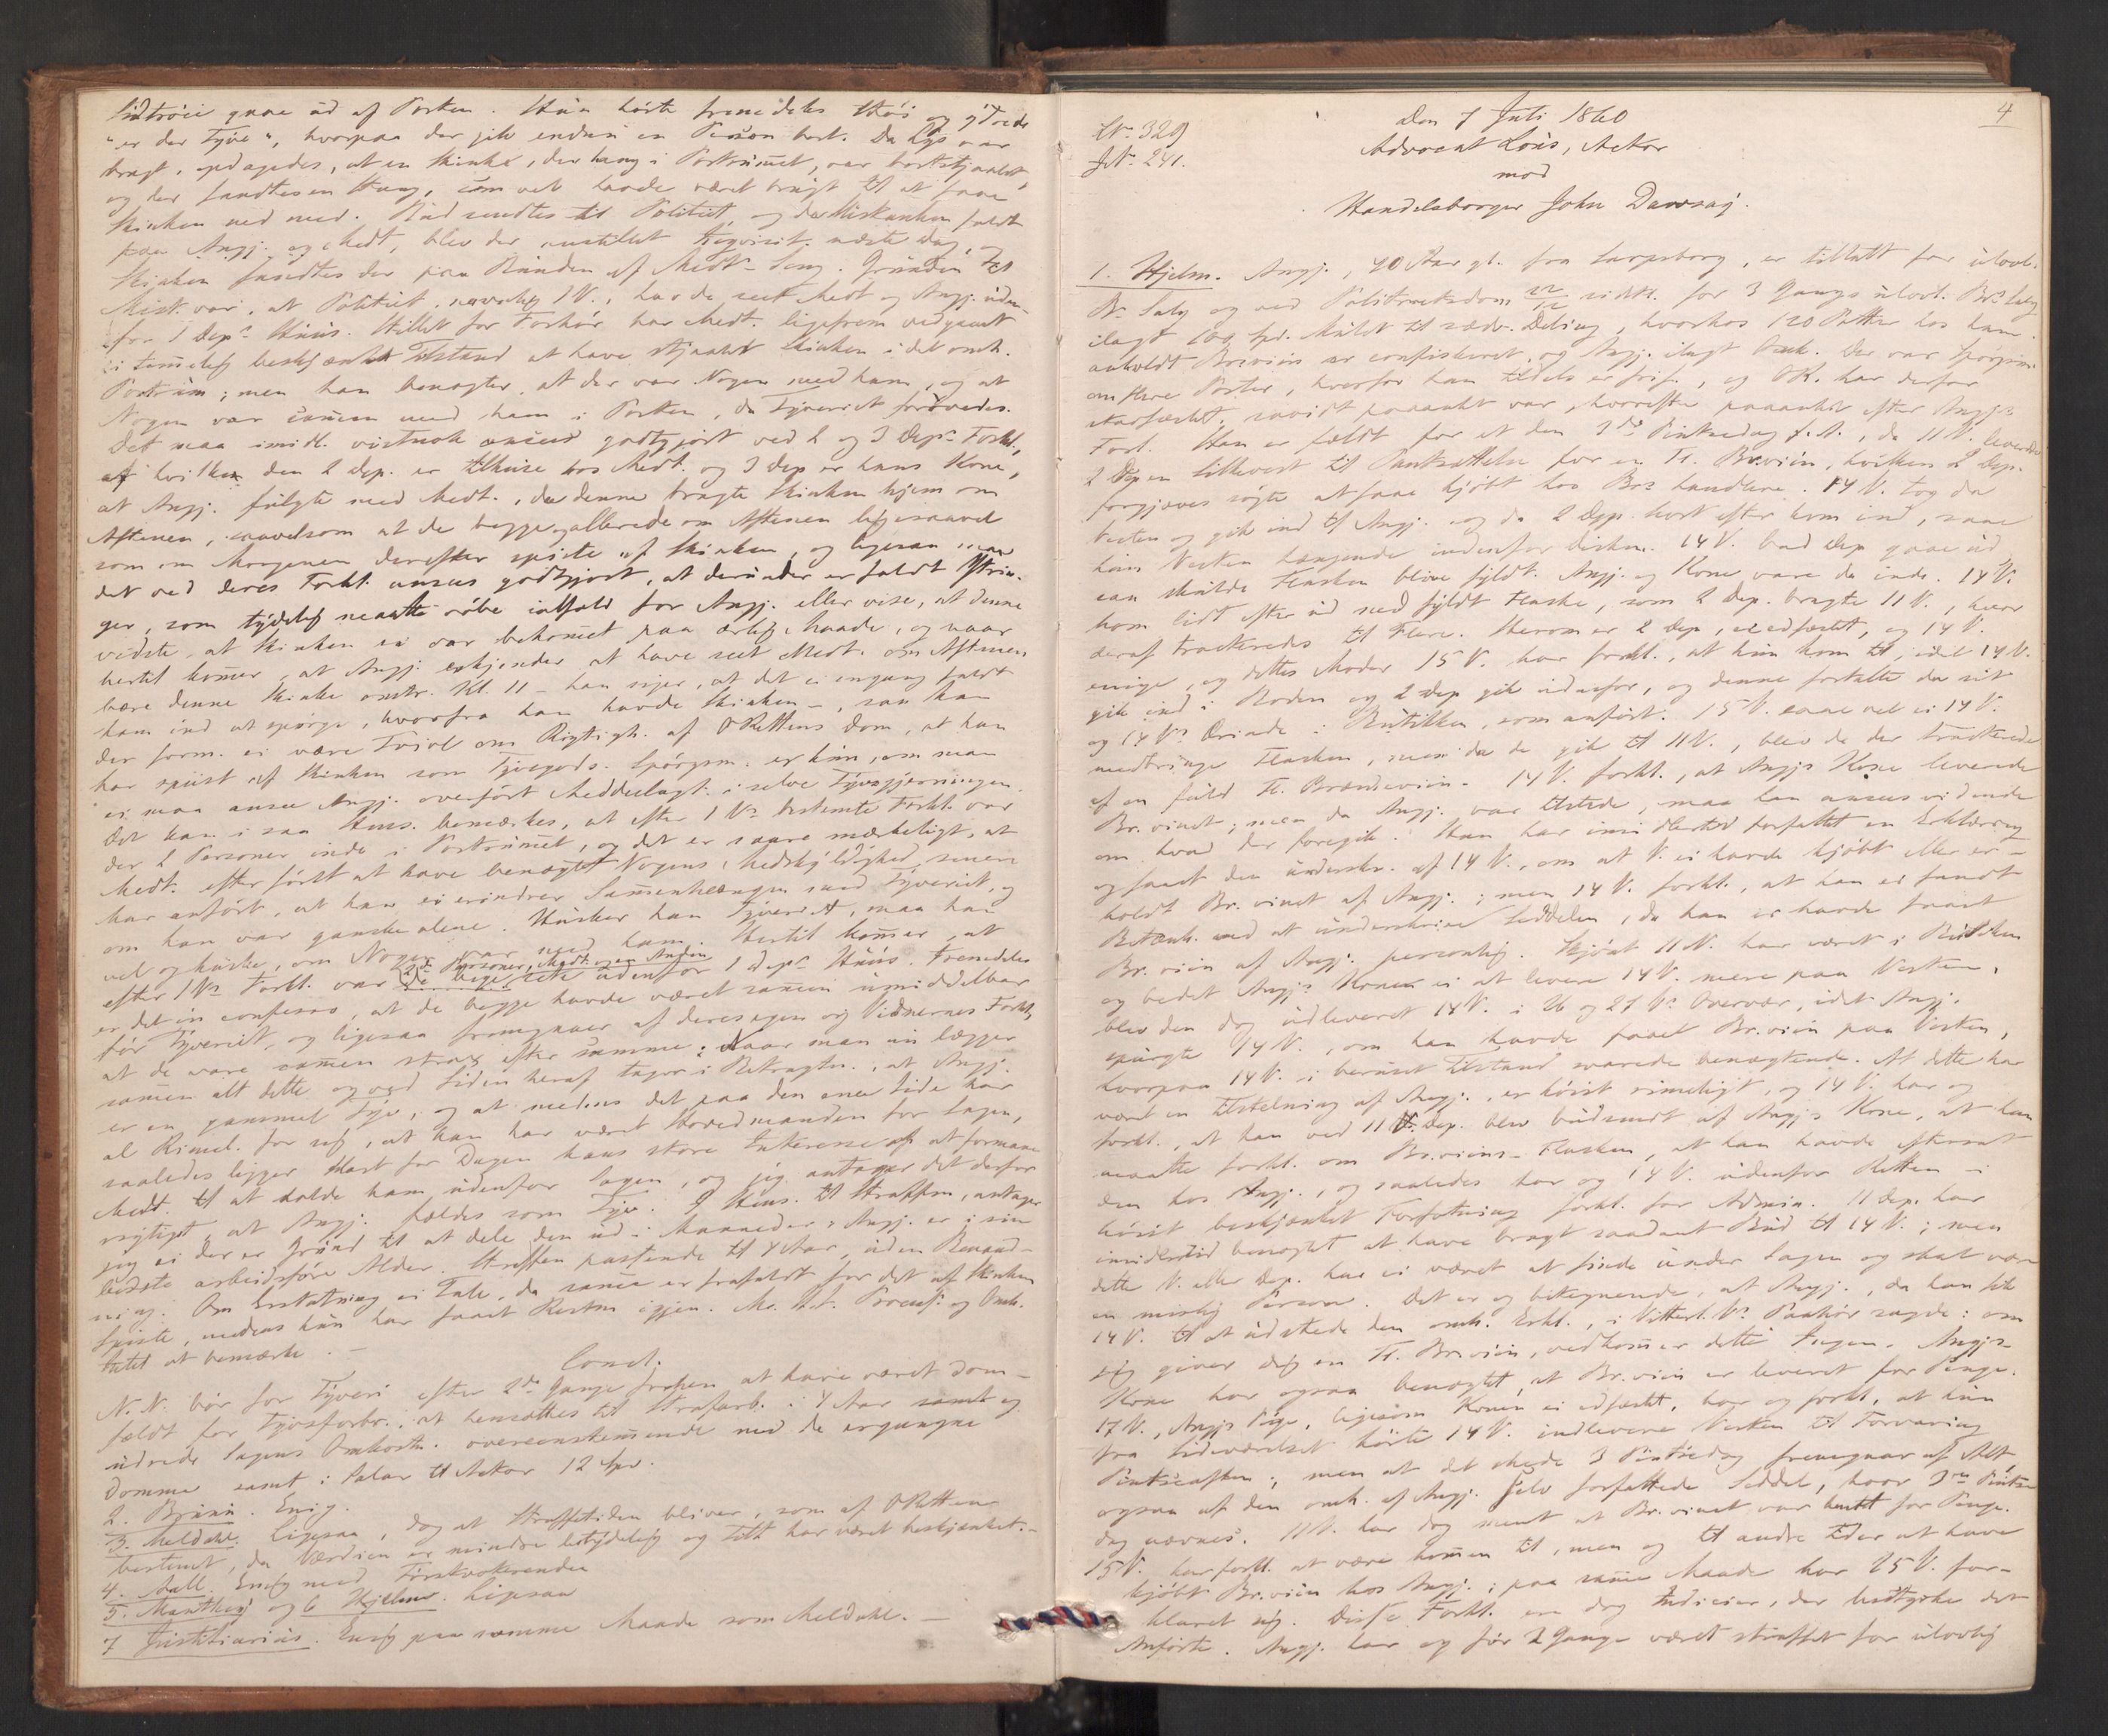 Lidtröie gaae ud af Porten. Hun hørte fremdeles Støi og ÿtrede
"er der Tyve", hvorpaa der gik endnu en Person bort. Da Lys var
bragt, opdagedes, at en Skinke, der hang i Portrummet, var bortstjaalet,
og der fandtes en Stang, som vel havde været brugt til at faae
Skinken ned med. Bud sendtes til Politiet, og da Mistanken faldt
paa Angj. og Medt., blev der anstillet Inqvisit. næste Dag, og
Skinken fandtes der paa Bunden af Medts Seng. Grunden til
Mist. var, at Politiet, navnlig 1 V., havde seet Medt og Angj. uden-
for 1 Deps Huus. Stillet for Forhör har Medt. ligefrem vedgaaet
i temmelig beskjænket Tilstand at have stjaalet Skinken i det omh.
Portrum; men han benægter, at der var Nogen med ham, og at
Nogen var sammen med ham i Porten, da Tyveriet forövedes.
Det maa imidl. vistnok ansees godtgjort ved 2 og 3 Deps Forkl.,
af hvilken den 2 Dep. er tilhuse hos Medt. og 3 Dep er hans Kone,
at Angj. fulgte med Medt., da denne bragte Skinken hjem om
Aftenen, saavelsom at de begge allerede om Aftenen ligesaavel
som om Morgenen derefter spiste af Skinken, og ligesaa maa
det ved deres Forkl. ansees godtgjort, at derunder er faldt Yttrin-
ger, som tydelig maatte röbe ialfald for Angj. eller vise, at denne
vidste, at Skinken ei var bekommet paa ærlig Maade, og naar
hertil kommer, at Angj. erkjender at have seet Medt. om Aftenen
bære denne Skinke omtr. Kl. 11 – han siger, at det ei engang faldt
ham ind at spørge, hvorfra han havde Skinken –, saa kan
der form. ei være Tvivl om Rigtigh. af ORettens Dom, at han
har spiist af Skinken som Tyvegods. Spörgsm. er kun, om man
ei maa ansee Angj. overfört Meddeelagt. i selve Tyvsgjerningen.
Det kan i saa Hens. bemærkes, at efter 1 Vs bestemte Forkl. var
der 2 Personer inde i Portrummet, og det er saare mærkeligt, at
Medt. efter först at have benægtet Nogens Medskyldighed, senere
har anfört, at han ei erindrer Sammenhængen med Tyveriet, og
om han var ganske alene. Husker han Tyveriet, maa han
vel og huske, om Nogen var med ham. Hertil kommer, at
2de Personer, Medt. og en Anden
efter 1 Vs Forkl. var de begge sete udenfor 1 Deps Huus. Fremdeles
er det in confesso, at de begge havde været sammen umiddelbar
för Tyveriet, og ligesaa fremgaaer af deres egen og Vidnernes Forkl.,
at de vare sammen strax efter samme. Naar man nu lægger
sammen alt dette og ved Siden heraf tager i Betragtn., at Angj.
er en gammel Tyv, og at medens det paa den ene Side har
al Rimel. for sig, at han har været Hovedmanden for Sagen,
saaledes ligger klart for Dagen hans store Interesse af at formaae
Medt. til at holde ham udenfor Sagen, og jeg antager det derfor
rigtigst, at Angj. fældes som Tyv. I Hens. til Straffen, antager
jeg ei der er Grund til at dele den ud i Maaneder; Angj. er i sin
bedste arbeidsföre Alder. Straffen passende til 4 Aar, uden Benaad-
ning. Om Erstatning ei Tale, da samme er frafaldt for det af Skinken
Spiste, medens hun har faaet Resten igjen. Mo. H. t. Process. og Omk.
Intet at bemærke. –
Concl.
N. N. bör for Tyveri efter 2de Gange forhen at have været dom-
fældt for Tyvsforbr., at hensættes til Strafarb. i 4 Aar samt og
udrede Sagens Omkostn. overeenstemmende med de ergangne
Domme samt i Salær til Actor 12 Spd.
2. Bruun. Enig.
3. Meldahl. Ligesaa, dog at Straffetiden bliver, som af ORetten
bestemt, da Værdien er mindre betydelig og Tilt. har været beskjænket.–
4. Aall. Enig med Förstvoterende
5. Manthey og 6 Hjelm. Ligesaa
7 Justitiarius. Enig paa samme Maade som Meldahl. –
4
Lr. 329
Jr. 241.
Den 7 Juli 1860
Advocat Lous, Actor
mod
Handelsborger John Dawsaj.
1. Hjelm. Angj., 40 Aar gl. fra Sarpsborg, er tiltalt for ulovl.
Br. Salg og ved Politiretsdom 22/12 sidstl. for 3 Gangs ulovl. Brs Salg
ilagt 100 Spd. Mulct til sædv. Deling, hvorhos 120 Potter hos ham
anholdt Brviin er confiskeret, og Angj. ilagt Omk. Der var Spörgsm.
om flere Poster, hvorfor han tildels er frif., og OR. har derfor
stadfæstet, saavidt paaankt var, hvorefter paaankt efter Angjs
Forl. Han er fældt for at den 3die Pintsedag f. A., da 11 V. leverede
2 Dep en Silkevest til Pantsættelse for en Fl. Brviin, hvilken 2 Dep.
forgjæves søgte at faae kjøbt hos Brs handlere. 14 V. tog da
Vesten og gik ind til Angj. og da 2 Dep. kort efter kom ind, saae
hun Vesten hængende indenfor Disken. 14 V. bad Dep gaae ud
saa skulde Flasken blive fyldt. Angj. og Kone vare da inde. 14 V.
kom lidt efter ud med fyldt Flaske, som 2 Dep. bragte 11 V., hvor
deraf tracteredes til Flere. Herom er 2 Dep, edfæstet, og 14 V.
enige, og dettes Moder 15 V. har forkl., at hun kom til, idet 14 V.
gik ind i Boden og 2 Dep gik udenfor, og denne fortalte da sit
og 14 Vs Ærinde i Butikken, som anfört. 15 V. saae vel ei 14 V.
medbringe Flasken, men da de gik til 11 V., blev da der tracterede
af en fuld Fl. Brændeviin. 14 V. forkl., at Angjs Kone leverede
Br. vinet; men da Angj. var tilstede, maa han ansees vidende
om hvad der foregik. Han har imidlertid forfattet en Erklæring
og faaet den underskr. af 14 V., om at V. ei havde kjöbt eller er-
holdt Br. vinet af Angj.; men 14 V. forkl., at han ei fandt
Betænk. ved at underskrive Seddelen, da han ei havde faaet
Br. viin af Angj. personlig. Skjönt 11 V. har været i Butikken
og bedet Angjs Kone ei at levere 14 V. mere paa Vesten,
blev den dog udleveret 14 V. i 26 og 27 Vs Overvær, idet Angj.
spurgte 14 V., om han havde faaet Br. viin paa Vesten,
hvorpaa 14 V. i beruset Tilstand svarede benægtende. At dette har
været en Tilstelning af Angj., er höist rimeligt, og 14 V. har og
forkl., at han ved 11 Dep. blev budsendt af Angjs Kone, at han
maatte forkl. om Br.viins-Flasken, at han havde efterladt
den hos Angj., og saaledes har og 14 V. udenfor Retten i
höist beskjænket Forfatning forkl. for Admin. 11 Dep. har
imidlertid benægtet at have bragt saadant Bud til 14 V.; men
dette V. eller Dep. har ei været at finde under Sagen og skal være
en mislig Person. Det er og betegnende, at Angj., da han fik
14 V. til at udstede den omh. Erkl., i Vitterl. Vs Paahör sagde: om
jeg giver dig en Fl. Br. viin, vedkommer dette Ingen. Angjs
Kone har ogsaa benægtet, at Br. viin er leveret for Penge.
17 V., Angjs Pige, ligesom Konen ei edfæstet, har og forkl., at hun
fra Sideværelset hörte 14 V. indlevere Vesten til Forvaring
Pintseaften; men at det skede 3 Pintsedag fremgaar af Alt
ogsaa af den omh. af Angj. selv forfattede Seddel, hvor 3die Pintse
dag nævnes. 11 V. har dog meent at Br. vinet var hentet for Penge.
15 V. har forkl. at være kommen til, men og til andre Tider at have
kjöbt Br. viin hos Angj.; paa samme Maade har 25 V. for-
klaret sig. Disse Forkl. ere dog Indicier, der bestyrke det
Anförte. Angj. har og för 2 Gange været straffet for ulovlig